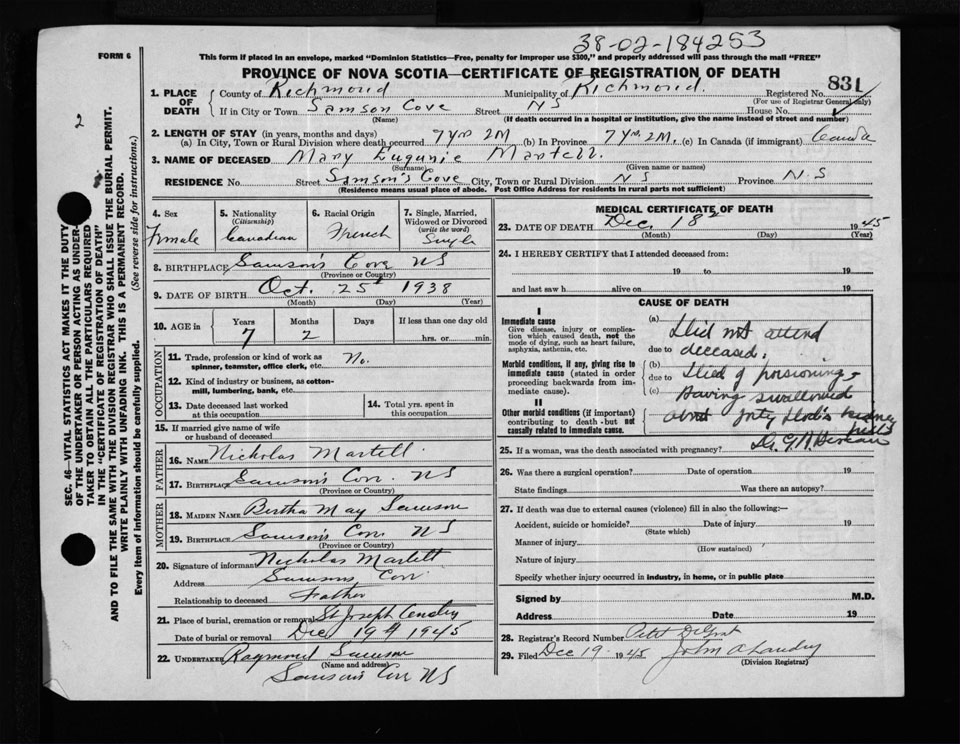 38-02-184253
FORM 6
This form if placed in an envelope, marked "Dominion Statistics—Free, penalty for improper use $300," and properly addressed will pass through the mail "FREE"
PROVINCE OF NOVA SCOTIA—CERTIFICATE OF REGISTRATION OF DEATH
831
1. PLACE OF DEATH
County of Richmond Municipality of Richmond. Registered No.
(For use of Registrar General only)
If in City or Town Samson Cove Street NS House No.
(Name) (If death occurred in a hospital or institution, give the name instead of street and number)
2. LENGTH OF STAY (in years, months and days)
(a) In City, Town or Rural Division where death occurred 7 yrs 2M (b) In Province 7 Yrs. 2M. (c) In Canada (if immigrant) Canada
3. NAME OF DECEASED Mary Eugunie Martell.
(Surname) (Given name or names)
RESIDENCE No. Street Samson's Cove City, Town or Rural Division NS Province N.S
(Residence means usual place of abode. Post Office Address for residents in rural parts not sufficient)
4. Sex
Female
5. Nationality
(Citizenship)
Canadian
6. Racial Origin
French
7. Single, Married, Widowed or Divorced
(write the word)
Single
8. BIRTHPLACE Samson's Cove NS
(Province or Country)
9. DATE OF BIRTH Oct. 25 1938
(Month) (Day) (Year)
10. AGE in
Years Months Days If less than one day old
7 2 hrs. or min.
OCCUPATION
11. Trade, profession or kind of work as spinner, teamster, office clerk, etc. No.
12. Kind of industry or business, as cotton-mill, lumbering, bank, etc.
13. Date deceased last worked at this occupation
14. Total yrs. spent in this occupation
15. If married give name of wife or husband of deceased
FATHER
16. NAME Nicholas Martell.
17. BIRTHPLACE Samson's Cove NS
(Province or Country)
MOTHER
18. MAIDEN NAME Bertha May Samson
19. BIRTHPLACE Samson's Cove NS
(Province or Country)
20. Signature of informant Nicholas Martell
Address Samsons Cove
Relationship to deceased Father
21. Place of burial, cremation or removal St Joseph
Date of burial or removal Dec 19 1945
22. UNDERTAKER Raymond Samson
(Name and address)
Samson's Cove NS
MEDICAL CERTIFICATE OF DEATH
23. DATE OF DEATH Dec. 18 1945
(Month) (Day) (Year)
24. I HEREBY CERTIFY that I attended deceased from:
19 to 19
and last saw h alive on 19
CAUSE OF DEATH
I
Immediate cause
Give disease, injury or complication which caused death, not the mode of dying, such as heart failure, asphyxia, asthenia, etc.
Morbid conditions, if any, giving rise to immediate cause (stated in order proceeding backwards from immediate cause).
II
Other morbid conditions (if important) contributing to death but not causally related to immediate cause.
(a) Did not attend
due to deceased.
(b)
due to Died of poisoning,
(c) Having swallowed
about forty Dod's kidney
pills
Dr. G. N.
25. If a woman, was the death associated with pregnancy?
26. Was there a surgical operation? Date of operation 19
State findings Was there an autopsy?
27. If death was due to external causes (violence) fill in also the following:—
Accident, suicide or homicide? Date of injury 19
(State which)
Manner of injury
(How sustained)
Nature of injury
Specify whether injury occurred in industry, in home, or in public place
Signed by M.D.
Address Date 19
28. Registrar's Record Number Petit DeGrat
29. Filed Dec 19. 1945 John A Landry
(Division Registrar)
2
SEC. 46—VITAL STATISTICS ACT MAKES IT THE DUTY
OF THE UNDERTAKER OR PERSON ACTING AS UNDER-
TAKER TO OBTAIN ALL THE PARTICULARS REQUIRED
IN THE "CERTIFICATE OF REGISTRATION OF DEATH"
AND TO FILE THE SAME WITH THE DIVISION REGISTRAR WHO SHALL ISSUE THE BURIAL PERMIT.
WRITE PLAINLY WITH UNFADING INK. THIS IS A PERMANENT RECORD.
Every item of information should be carefully supplied. (See reverse side for instructions.)